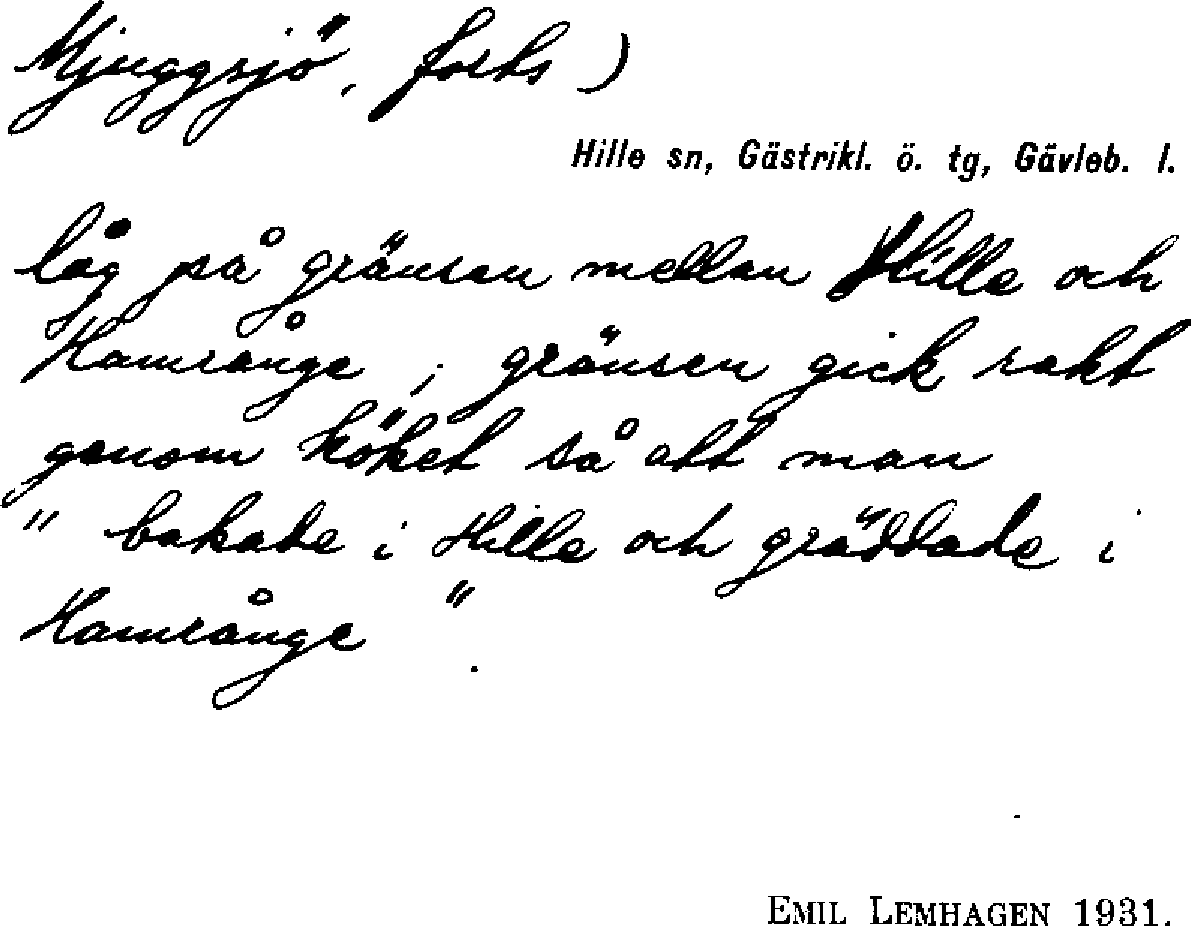 Mjuggsjö, forts)
Hille sn, Gästrikl. ö. tg, Gävleb. l.
låg på gränsen mellan Hille och
Hamrånge, gränsen gick rakt
genom köket så att man
"bakade i Hille och gräddade i
Hamrånge".
EMIL LEMHAGEN 1931.